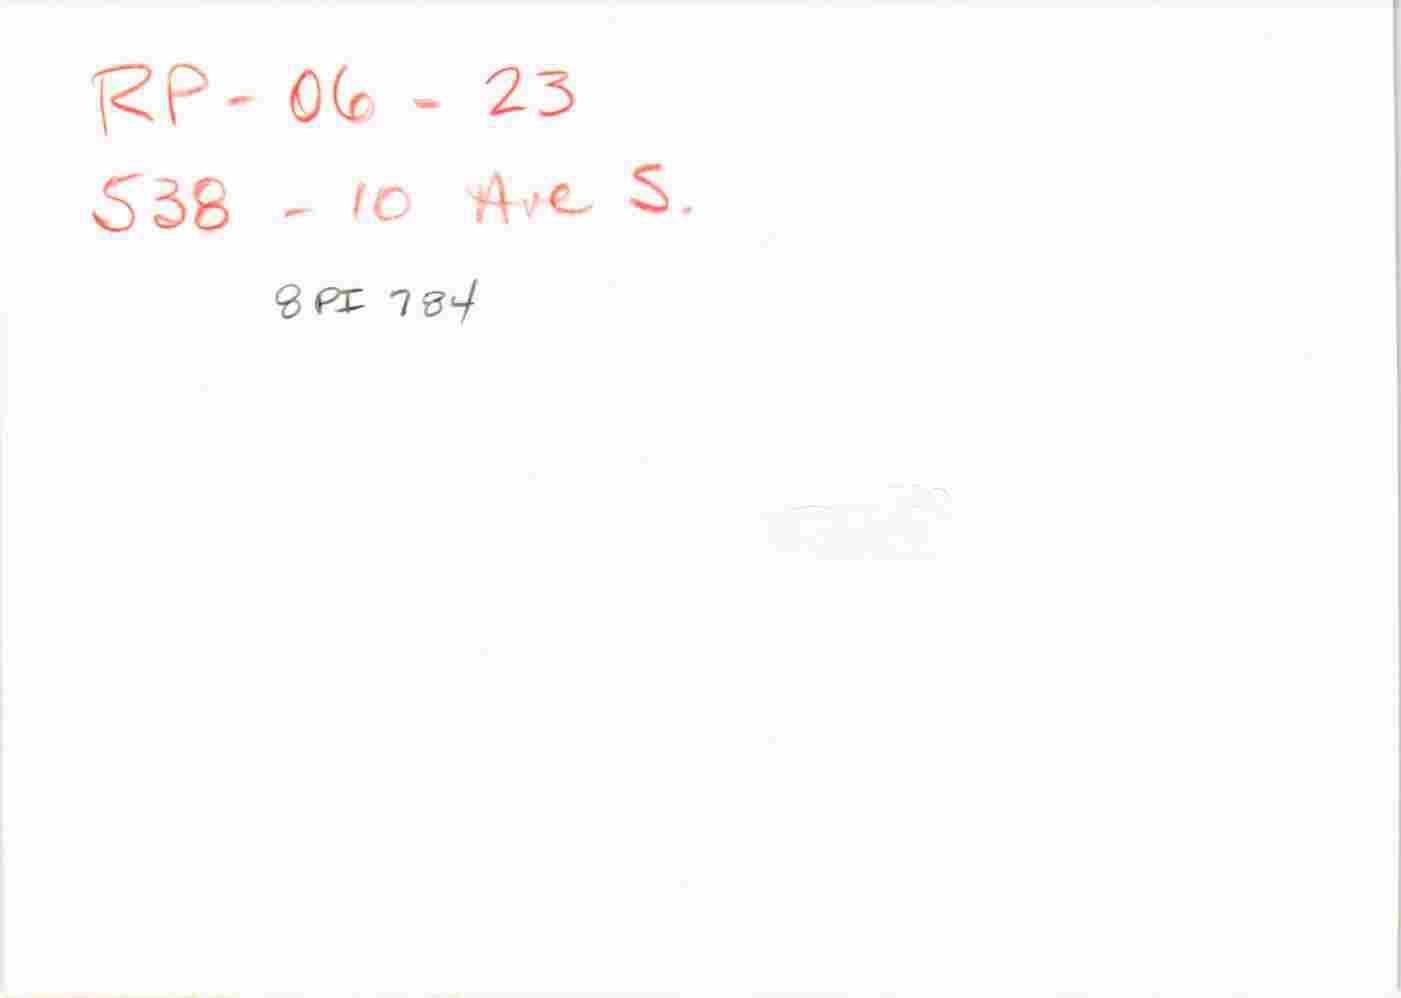 RP - 06 - 23
538 - 10 Ave S.
8PI 784